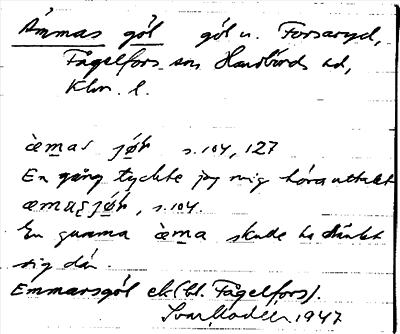 Ammas göl göl n. Forsaryd,
Fågelfors sn Handbörds hd,
Klm. l.
æmas jör s. 104, 127
En gång tyckte jag mig höra uttalet
æmas jör, s. 104.
En gumma æma skulle ha dränkt
sig där.
Emmarsgöl ek (bl. Fågelfors).
Ivar Modéer 1947